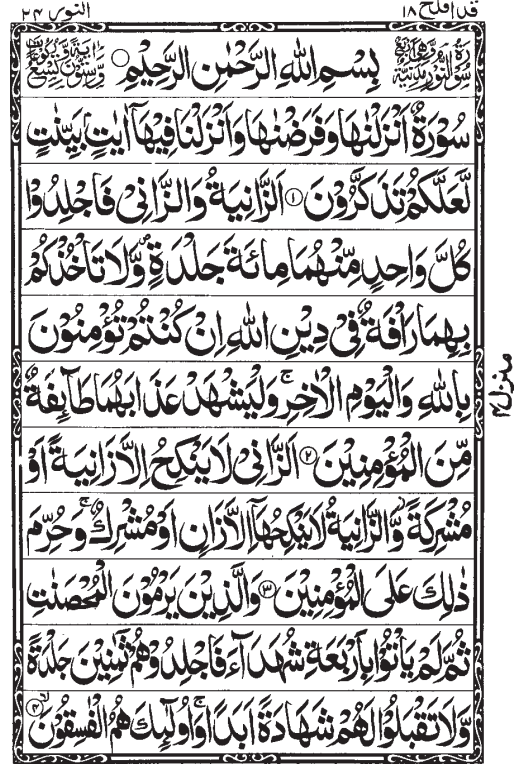 قد افلح ۱۸
النور ۲۴
بِسْمِ اللهِ الرَّحْمٰنِ الرَّحِيْمِ ○
سُوْرَةٌ اَنْزَلْنٰهَا وَفَرَضْنٰهَا وَاَنْزَلْنَا فِيْهَآ اٰيٰتٍۭ بَيِّنٰتٍ
لَّعَلَّكُمْ تَذَكَّرُوْنَ ۝۱ اَلزَّانِيَةُ وَالزَّانِيْ فَاجْلِدُوْا
كُلَّ وَاحِدٍ مِّنْهُمَا مِائَةَ جَلْدَةٍ ۪ وَّلَا تَاْخُذْكُمْ
بِهِمَا رَاْفَةٌ فِيْ دِيْنِ اللهِ اِنْ كُنْتُمْ تُؤْمِنُوْنَ
بِاللهِ وَالْيَوْمِ الْاٰخِرِ ۚ وَلْيَشْهَدْ عَذَابَهُمَا طَآئِفَةٌ
مِّنَ الْمُؤْمِنِيْنَ ۝۲ اَلزَّانِيْ لَا يَنْكِحُ اِلَّا زَانِيَةً اَوْ
مُشْرِكَةً ؗ وَّالزَّانِيَةُ لَا يَنْكِحُهَآ اِلَّا زَانٍ اَوْ مُشْرِكٌ ۚ وَحُرِّمَ
ذٰلِكَ عَلَى الْمُؤْمِنِيْنَ ۝۳ وَالَّذِيْنَ يَرْمُوْنَ الْمُحْصَنٰتِ
ثُمَّ لَمْ يَاْتُوْا بِاَرْبَعَةِ شُهَدَآءَ فَاجْلِدُوْهُمْ ثَمٰنِيْنَ جَلْدَةً
وَّلَا تَقْبَلُوْا لَهُمْ شَهَادَةً اَبَدًا ۚ وَاُولٰٓئِكَ هُمُ الْفٰسِقُوْنَ ۝۴
منزل ۴